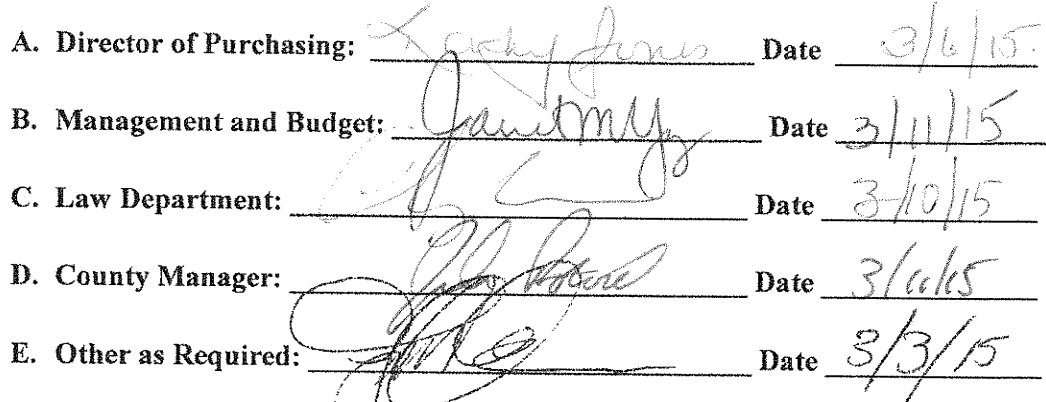 A. Director of Purchasing: Kathy Jones Date 3/6/15
B. Management and Budget: Date 3/11/15
C. Law Department: Date 3/10/15
D. County Manager: Date
E. Other as Required: Date 3/3/15